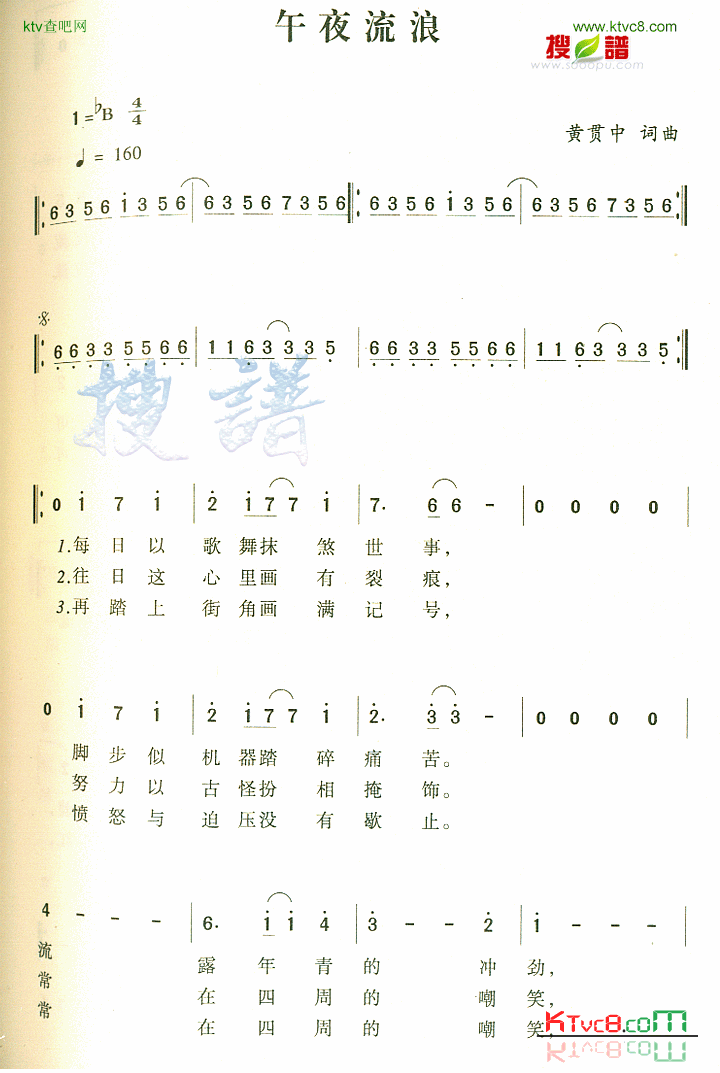 ktv查吧网
午夜流浪
www.ktvc8.com
搜谱
www.sooopu.com
1=♭B 4/4
♩= 160
黄贯中 词曲
6356i356 | 63567356 ‖: 6356i356 | 63567356 :‖
66335566 | 1163335 | 66335566 | 1163335 :‖
搜谱
0 i 7 i | 2 i77 i | 7. 66 - | 0 0 0 0
1.每日以 歌舞抹煞世事,
2.往日这 心里画有裂痕,
3.再踏上 街角画满记号,
0 i 7 i | 2 i77 i | 2. 33 - | 0 0 0 0
脚步似 机器踏碎痛苦。
努力以 古怪扮相掩饰。
愤怒与 迫压没有歇止。
4 - - - | 6. ii 4 | 3 - - 2 | i - - -
流 露年青的 冲劲,
常 在四周的 嘲笑,
常 在四周的 嘲笑,
KTvc8.com